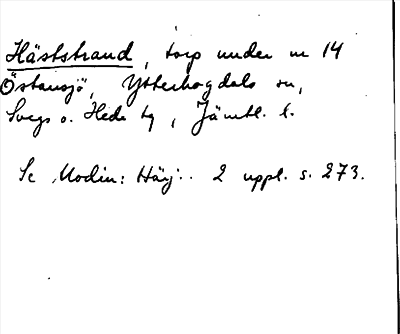 Häststrand, torp under nr 14
Östansjö, Ytterhogdals sn,
Svegs o. Hede tg, Jämtl. l.
Se Modin: Härj. 2 uppl. s. 273.